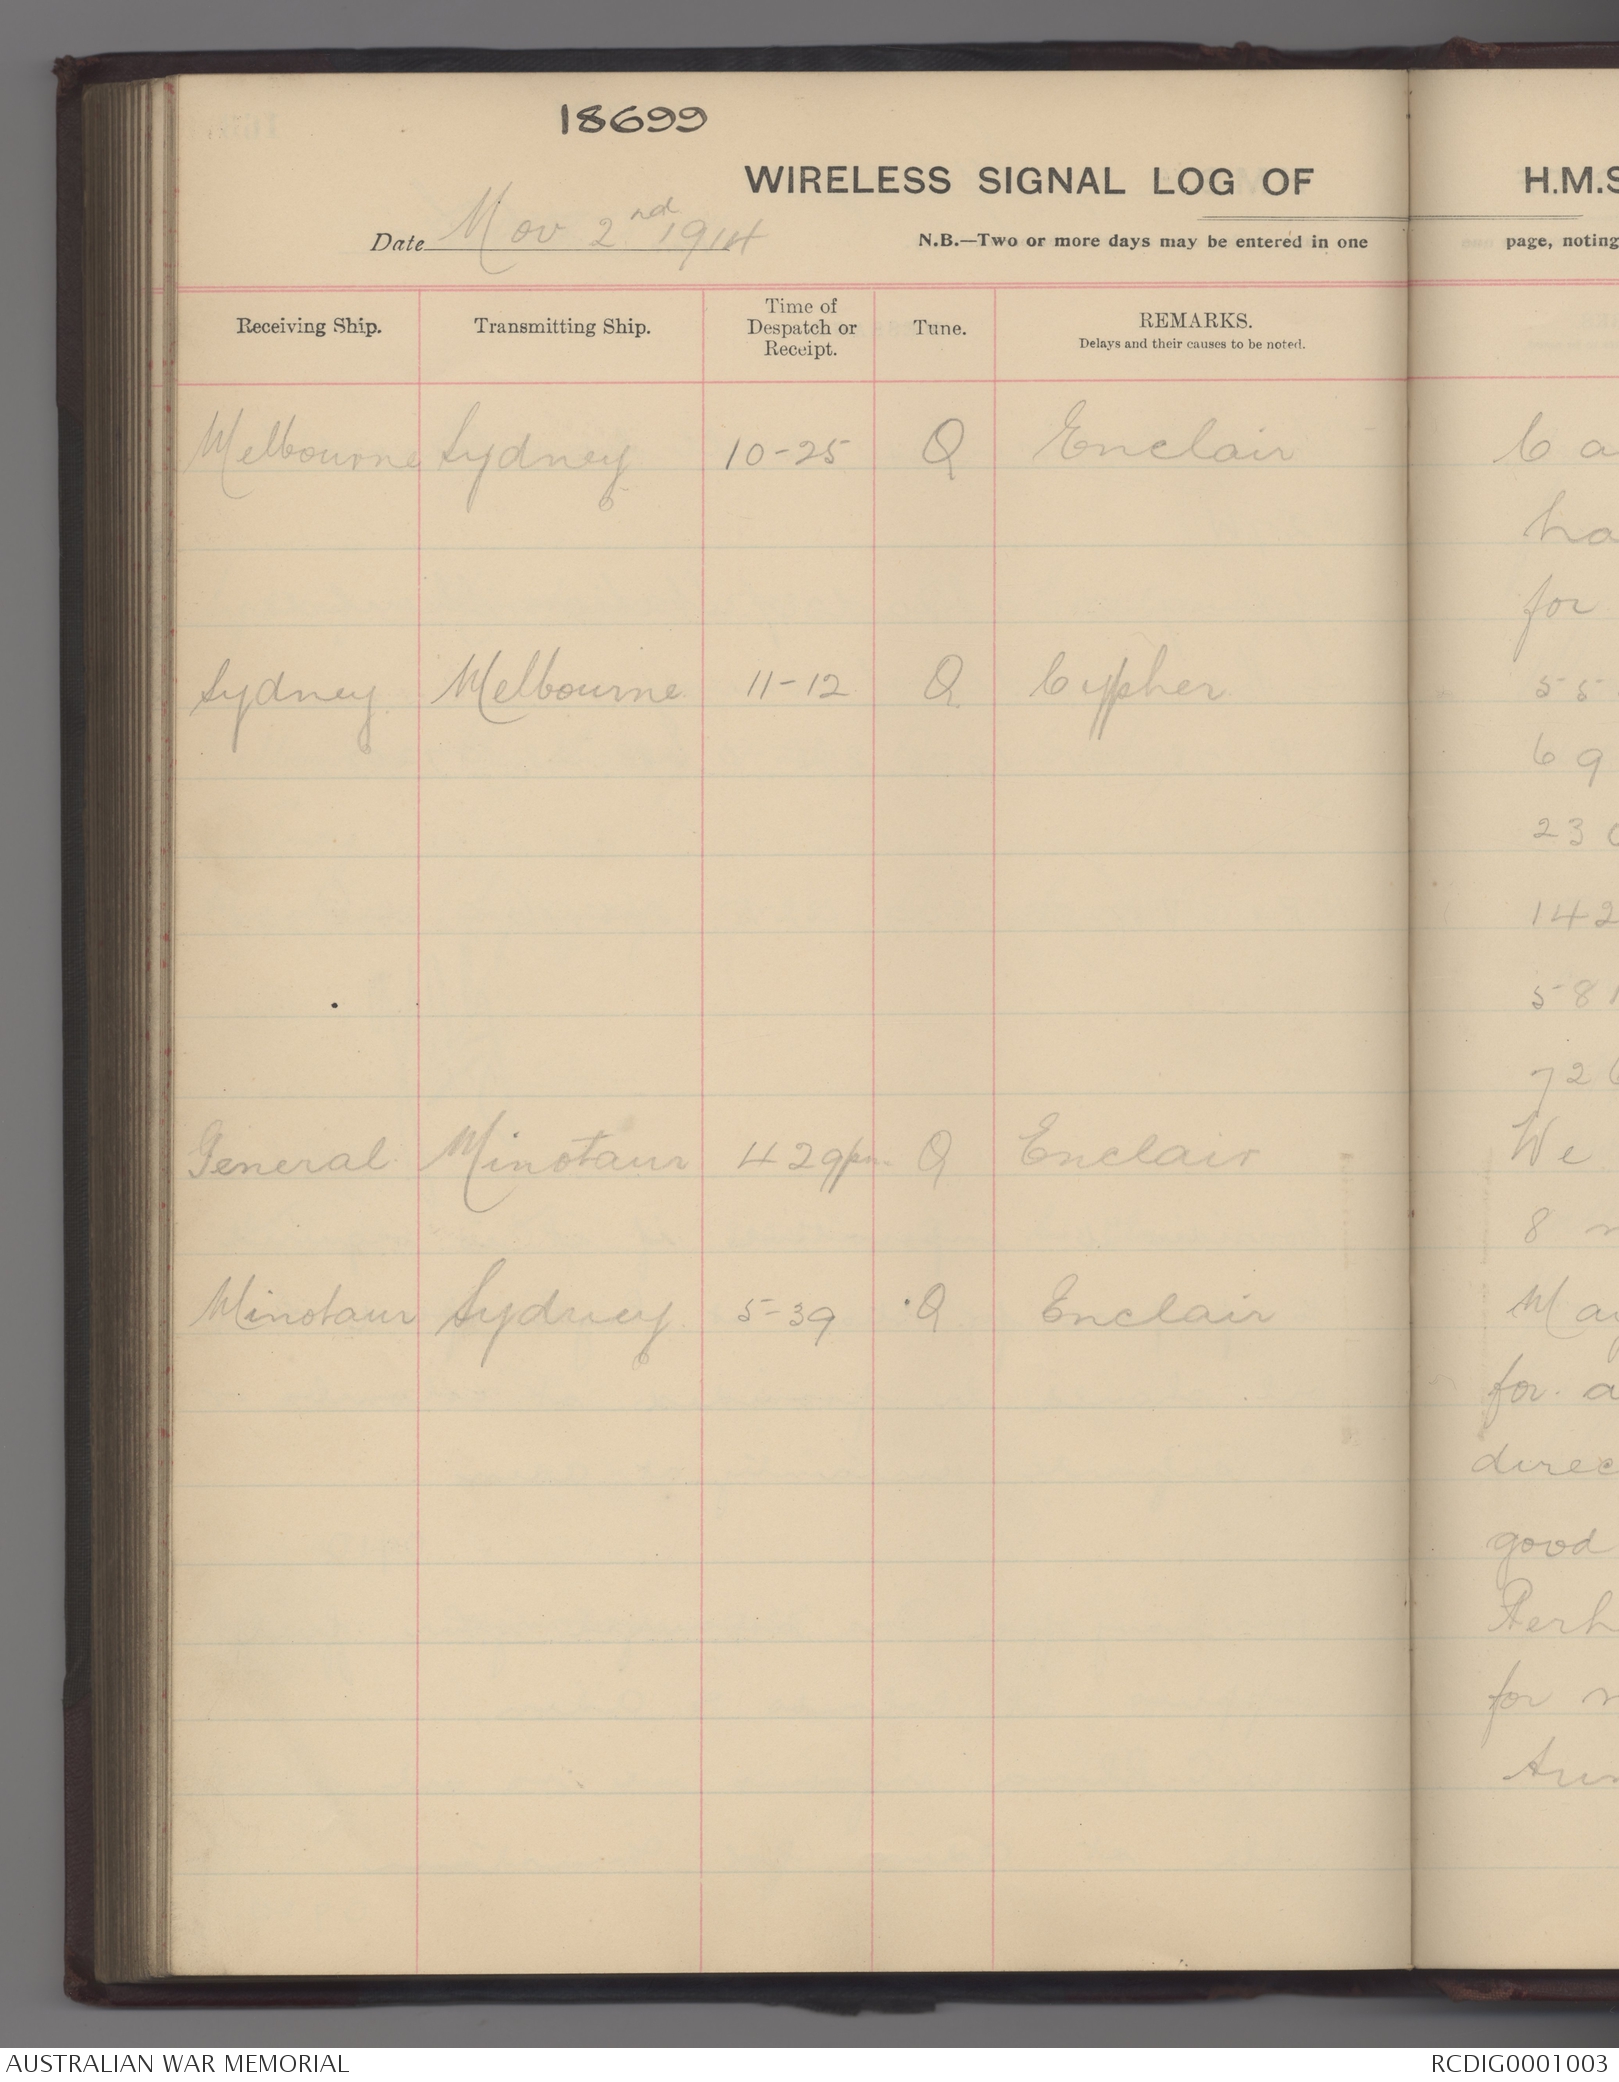 18699
WIRELESS SIGNAL LOG OF H.M.S
Date Nov 2nd 1914
N.B.—Two or more days may be entered in one page, noting
Receiving Ship. Transmitting Ship. Time of Despatch or Receipt. Tune. REMARKS. Delays and their causes to be noted.
Melbourne Sydney 10-25 Q Enclair
ha
for
Sydney Melbourne 11-12 Q Cypher 5 5
6 9
23
142
581
72
General Minotaur 4 29pm. Q Enclair We
8
Minotaur Sydney 5-39 Q Enclair May
for a
direc
good
Perh
for
AUSTRALIAN WAR MEMORIAL
RCDIG0001003